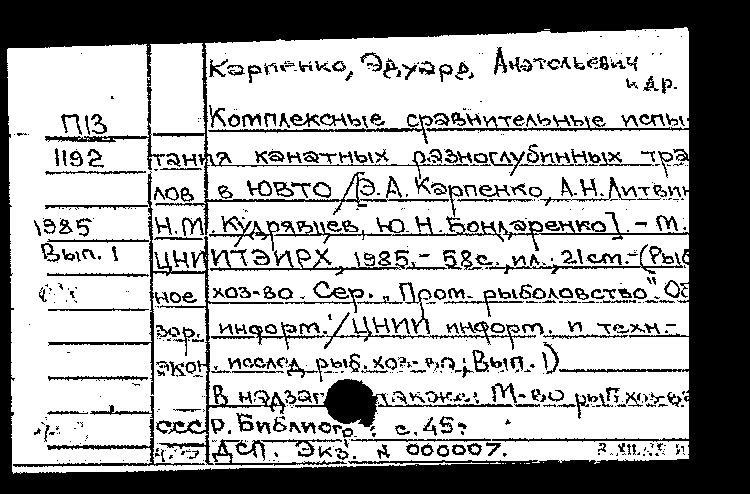 Карпенко, Эдуард Анатольевич
и др.
П13
1192
1985
Вып. 1
Комплексные сравнительные испы-
тания канатных разноглубинных тра
лов в ЮВТО / [Э.А. Карпенко, А.Н. Литвин
Н.М. Кудрявцев, Ю.Н. Бондаренко]. - М.
ЦНИИТЭИРХ, 1985. - 58 с., ил.; 21 см. - (Рыб
ное хоз-во. Сер. "Пром. рыболовство". Об
зор. информ. / ЦНИИ информ. и техн.-
экон. исслед. рыб. хоз-ва; Вып. 1)
В надзаг. также: М-во рыб. хоз-ва
СССР. Библиогр.: с. 45.
ДСП. Экз. N 000007.